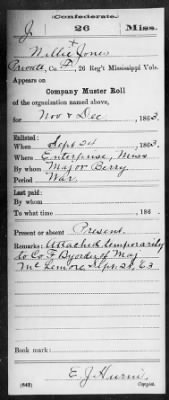 Confederate.
J 26 Miss.
Willie Jones
Private, Co. F, 26 Reg't Mississippi Vols.
Appears on
Company Muster Roll
of the organization named above,
for Nov & Dec, 1863.
Enlisted:
When Sept 24, 1863.
Where Enterprise, Miss
By whom Major Berry
Period War
Last paid:
By whom
To what time , 186 .
Present or absent Present
Remarks: Attached temporarily
to Co F By order of Maj
Sept. 28, 63
Book mark:
(642)
E. J.
Copyist.